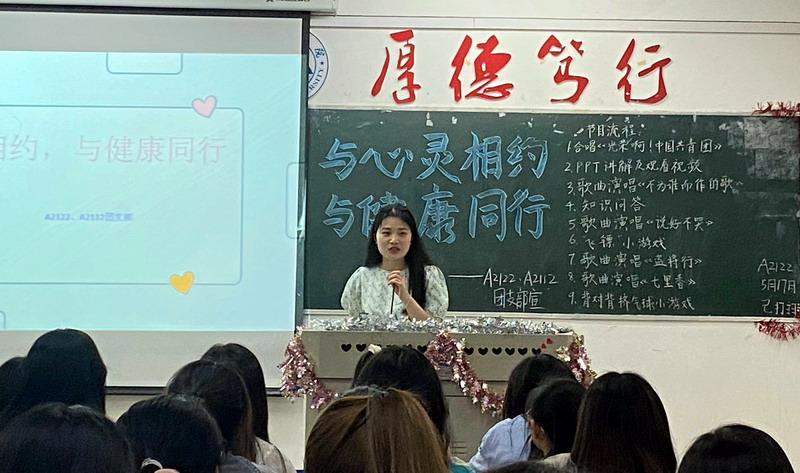 厚德笃行
相约，与健康同行
A2122、A2112团支部
与心灵相约
与健康同行
——A2122.A2112
团支部宣
流程:
1.合唱《光荣啊!中国共青团》
2.PPT讲解及观看视频
3.歌曲演唱《不为谁而作的歌》
4.知识问答
5.歌曲演唱《说好不哭》
6.飞镖小游戏
7.歌曲演唱《孟将行》
8.歌曲演唱《七里香》
9.背对背挤气球小游戏
A2122
5月17月
已打